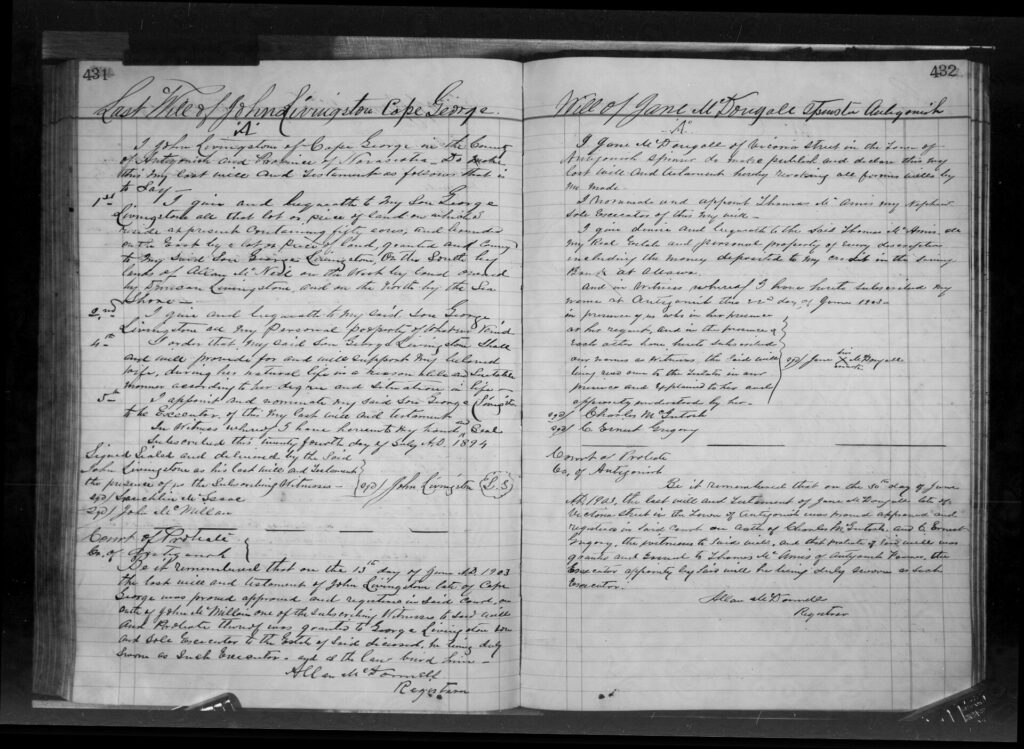 431
Last Will of John Livingston Cape George.
"A"
I John Livingston of Cape George in the County
of Antigonish and Province of Novascotia Do make
this my last will and Testament as follows that is
to Say
1st I give and bequeath to My Son George
Livingstone all that lot or piece of land on which I
reside at present Containing fifty acres, and bounded
on the East by a lot or piece of land, granted and
to My Said Son George Livingston, On the South by
lands of Allan McNeil on the West by land owned
by Duncan Livingstone, and on the North by the Sea
Shore —
2nd I give and bequeath to my said Son George
Livingstone all my Personal Property of whatever Kind
4th I order that my said Son George Livingston Shall
and will provide for and will support my beloved
wife, during her natural life in a reasonable and Suitable
manner according to her degree and Situation in life —
5th I appoint and nominate my said Son George Livingston
to be Executor of this my last will and testament
In Witness whereof I have hereunto my hand and Seal
Subscribed this twenty fourth day of July A.D. 1894
Signed Sealed and delivered by the Said
John Livingstone as his last will and Testament
the presence of us the Subscribing Witnesses — sgd/ John Livingston L.S
sgd/ Lauchlin McIsaac
sgd/ John McMillan
Court of Probate
Co. of Antigonish
Be it remembered that on the 13th day of June A.D. 1903
the last will and testament of John Livingston late of Cape
George was proved approved and registered in Said Court, on
oath of John McMillan one of the Subscribing Witnesses to Said will
and Probate thereof was granted to George Livingston Son
and Sole Executor to the Estate of Said deceased, he being duly
Sworn as Such Executor. as the law bind him —
Allan McDonnell
Registrar
432
Will of Jane McDougall Spinster Antigonish
"A"
I Jane McDougall of Victoria Street in the Town of
Antigonish Spinster do make publish and declare this my
last will and testament hereby revoking all former wills by
me made.
I nominate and appoint Thomas McAmis my Nephew
Sole Executor of this my will —
I give devise and bequeath to the Said Thomas McAmis, all
my Real Estate and personal property of every description
including the money deposited to my credit in the Saving
Bank at Ottawa.
and in Witness whereof I have hereto Subscribed my
name at Antigonish this 22nd day of June 1903 —
in presence of us who in her presence
at her request, and in the presence of
each other have hereto Subscribed
our names as Witness, the Said will
being read over to the Testatrix in our
presence and explained to her and
apparently understood by her.
sgd/ Jane her X mark McDougall
sgd/ Charles McIntosh
sgd/ C. Ernest Gregory
Court of Probate
Co. of Antigonish
Be it remembered that on the 30th day of June
A.D. 1903, the last will and Testament of Jane McDougall late of
Victoria Street in the Town of Antigonish was proved approved and
registered in Said Court on oath of Charles McIntosh and C. Ernest
Gregory, the witnesses to Said will, and that probate of Said will was
granted and issued to Thomas McAmis of Antigonish Farmer, the
Executor appointed by Said will he being duly sworn as such
Executor.
Allan McDonnell
Registrar